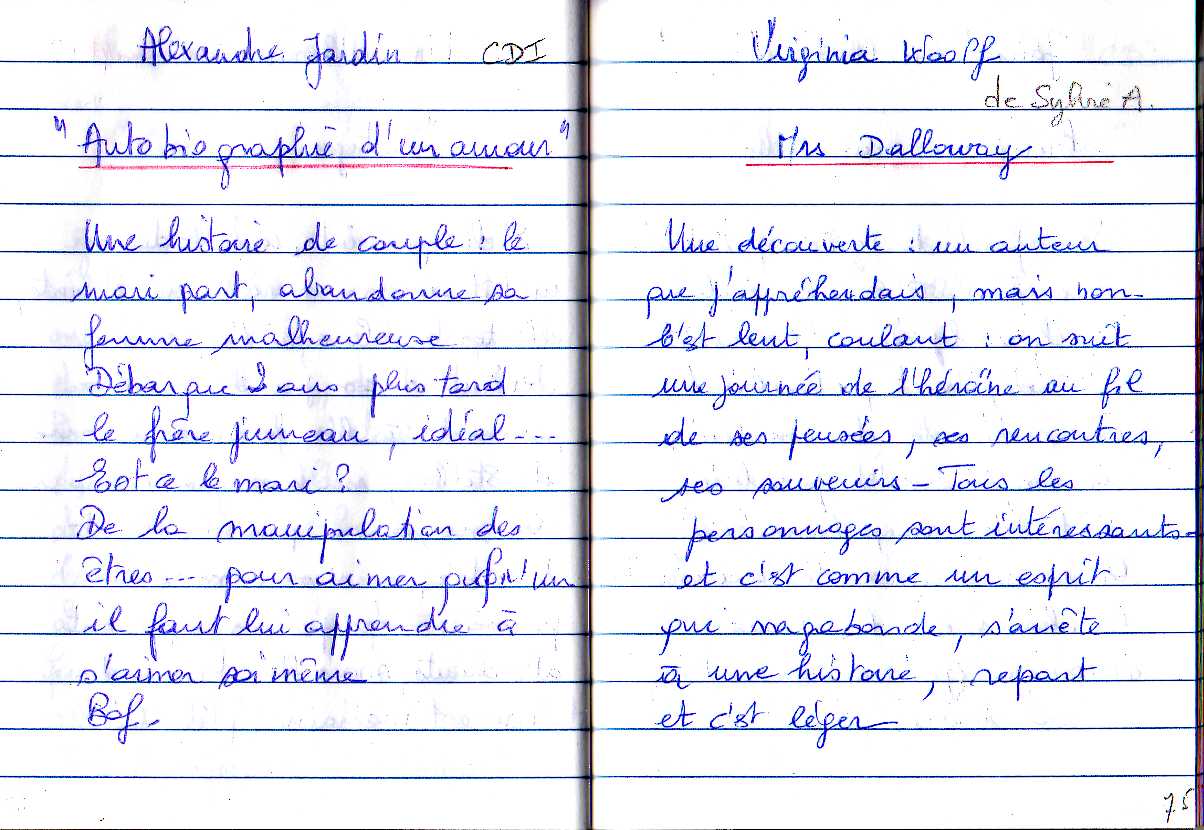 Alexandre Jardin CDI
"Autobiographie d'un amour"
Une histoire de couple : le
mari part, abandonne sa
femme malheureuse
Débarque 2 ans plus tard
le frère jumeau, idéal ...
Est ce le mari ?
De la manipulation des
êtres ... pour aimer quelqu'un
il faut lui apprendre à
s'aimer soi même
Bof.
Virginia Woolf
de Sylvie A.
Mrs Dalloway
Une découverte : un auteur
que j'appréhendais, mais non -
C'est lent, coulant : on suit
une journée de l'héroïne au fil
de ses pensées, ses rencontres,
ses souvenirs - Tous les
personnages sont intéressants -
et c'est comme un esprit
qui vagabonde, s'arrête
à une histoire, repart
et c'est léger -
75